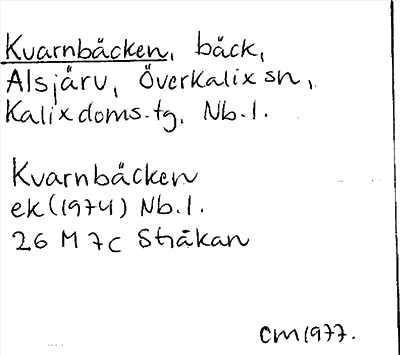 Kvarnbäcken, bäck,
Alsjärv, Överkalix sn,
Kalix doms.tg, Nb.l.
Kvarnbäcken
ek (1974) Nb.l.
26 M 7c Stråkan
CM 1977.